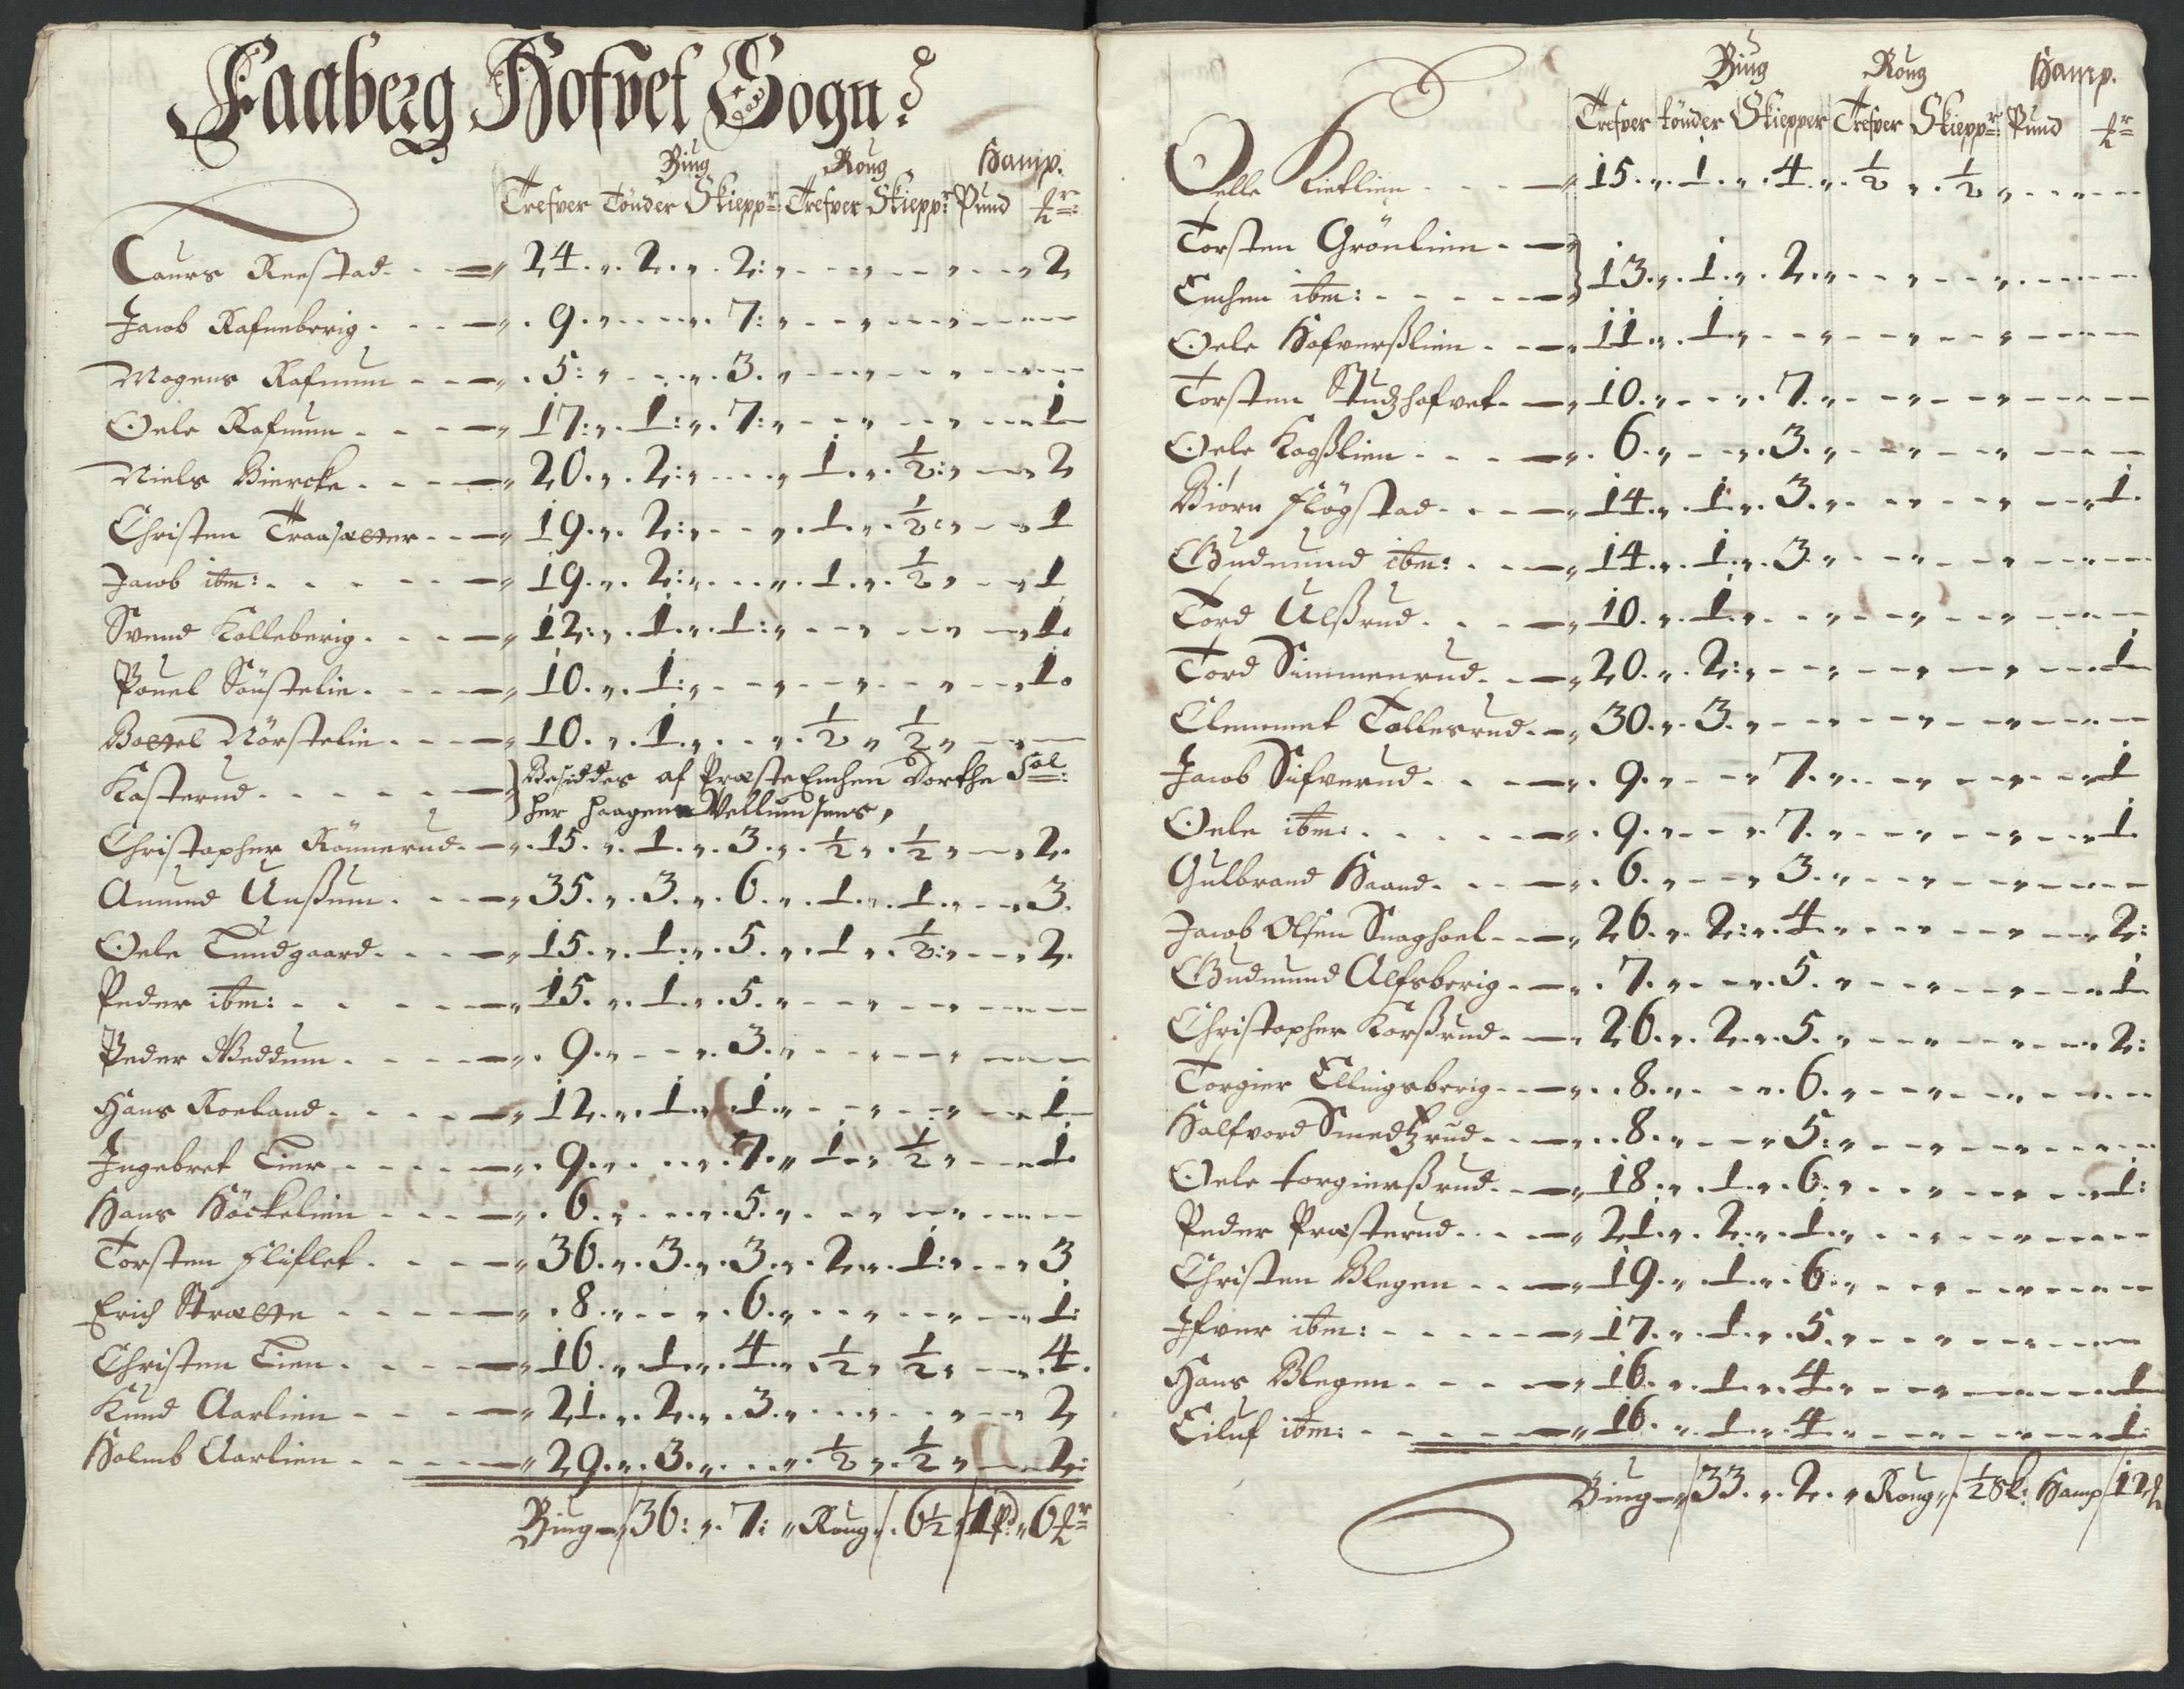 Faaberg Hofvet Sogn:
Biug Roug Hamp.
Trefver Tönder Skieppr: Trefver Skieppr: Pund
Laurs Reestad 24 2 2 2
Jacob Rafneberig 9 7
Mogens Rafnum 5 3
Oele Rafnum 17 1 7 1
Niels Biercke 20 2 1 ½ 2
Christen Traasætter 19 2 1 ½ 1
Jacob ibm: 19 2 1 ½ 1
Svend Kolleberig 12 1 1 1
Pouel Söustelie 10 1 1
Bottel Nörstelie 10 1 ½ ½
Kasterud Besiddes af Præste Enchen Dorthe Sal:
her Haagens Vellumsens,
Christopher Rönnerud 15 1 3 ½ ½ 2
Amund Unßum 35 3 6 1 1 3
Oele Lundgaard 15 1 5 1 ½ 2
Peder ibm: 15 1 5
Peder Weddum 9 3
Hans Roeland 12 1 1 1
Ingebret Lier 9 7 1 ½ 1
Hans Höckelien 6 5
Torsten Fliflet 36 3 3 2 1 3
Erich Strætte 8 6 1
Christen Lien 16 1 4 ½ ½ 4
Knud Aarlien 21 2 3 2
Holmb Aarlien 29 3 ½ ½ 2
Biug 36: 7: Roug 6½ 1 pd 6
Biug Roug Hamp.
Trefver tönder Skiepper Trefver Skieppr: Pund
Oelle Lietlien 15 1 4 ½ ½
Torsten Grönlien
Enchen ibm: 13 1 2
Oele Hofverßlien 11 1
Torsten Studzhofvet 10 7
Oele Kogßlien 6 3
Biörn Flögstad 14 1 3 1
Gudmund ibm: 14 1 3
Tord Ulßrud 10 1
Tord Simmenrud 20 2 1
Clemmet Tollesrud 30 3
Jacob Sifverud 9 7 1
Oele ibm: 9 7 1
Gulbrand Haand 6 3
Jacob Olsen Snaghoel 26 2 4 2
Gudmund Alfsberig 7 5 1
Christopher Korßrud 26 2 5 2
Torgier Ellingsberig 8 6
Halfvord Smedtzrud 8 5
Oele torgierßrud 18 1 6 1
Peder Præsterud 21 2 1
Christen Blegen 19 1 6
Ifver ibm: 17 1 5
Hans Blegen 16 1 4 1
Eiluf ibm: 16 1 4 1
Biug 33 2 Roug ½ Sk: Hamp 12